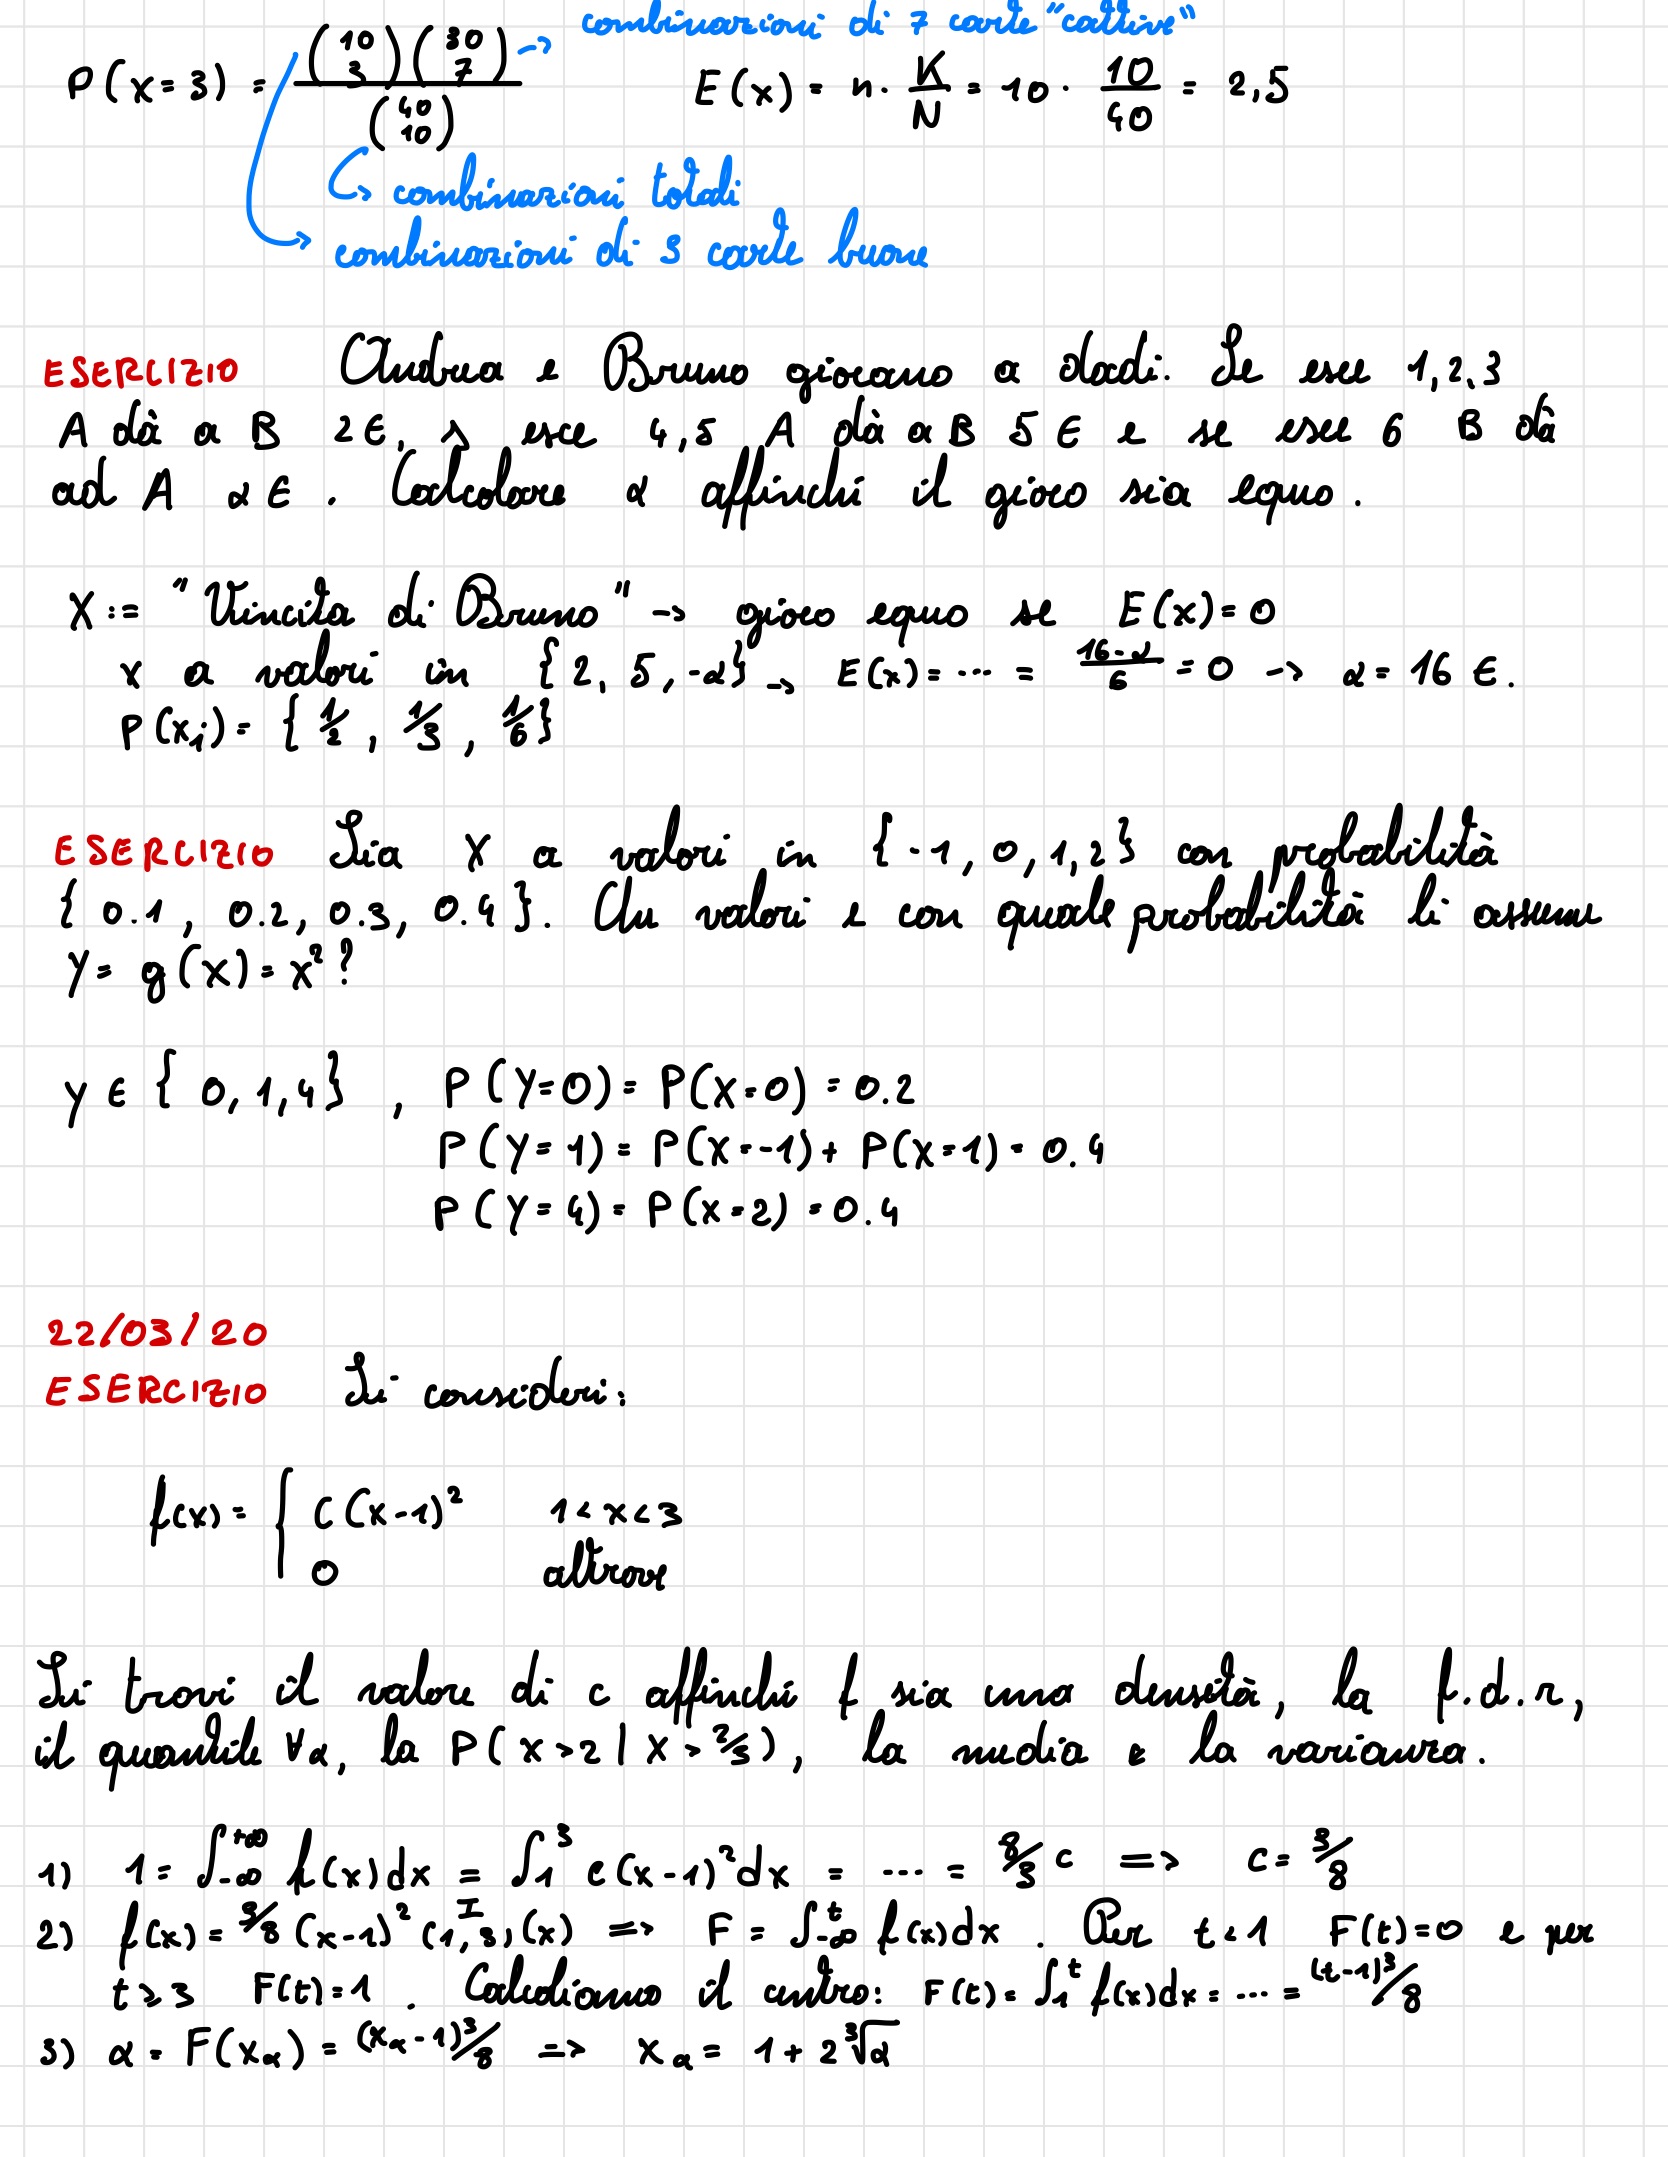 combinazioni di 7 carte "cattive"
P(x=3) = \frac{\binom{10}{3}\binom{30}{7}}{\binom{40}{10}} → E(x) = n · \frac{K}{N} = 10 · \frac{10}{40} = 2,5
combinazioni totali
combinazioni di 3 carte buone
ESERCIZIO Andrea e Bruno giocano a dadi. Se esce 1,2,3
A dà a B 2€, s esce 4,5 A dà a B 5 € e se esce 6 B dà
ad A α € . Calcolare α affinché il gioco sia equo .
X := "Vincita di Bruno" → gioco equo se E(x) = 0
x a valori in {2, 5, -α} → E(x) = ... = \frac{16-α}{6} = 0 → α = 16 € .
P(x_i) = { 1/2 , 1/3 , 1/6 }
ESERCIZIO Sia X a valori in {-1, 0, 1, 2} con probabilità
{ 0.1 , 0.2, 0.3, 0.4 }. Che valori e con quale probabilità li assume
Y = g(x) = x² ?
y ∈ { 0, 1, 4 } , P(Y=0) = P(X=0) = 0.2
P(Y=1) = P(X=-1) + P(X=1) = 0.4
P(Y=4) = P(X=2) = 0.4
22/03/20
ESERCIZIO Si consideri:
f(x) = { C(x-1)² 1<x<3
0 altrove
Si trovi il valore di c affinché f sia una densità, la f.d.r,
il quantile ∀α, la P(X>2 | X > 2/3), la media e la varianza.
1) 1 = ∫_{-∞}^{+∞} f(x)dx = ∫_1^3 c(x-1)²dx = ... = 8/3 c => c = 3/8
2) f(x) = 3/8 (x-1)² I_{(1,3)}(x) => F = ∫_{-∞}^t f(x)dx . Per t<1 F(t)=0 e per
t ≥ 3 F(t)=1 . Calcoliamo il centro: F(t) = ∫_1^t f(x)dx = ... = (t-1)³/8
3) α = F(x_α) = (x_α-1)³/8 => x_α = 1 + 2∛α